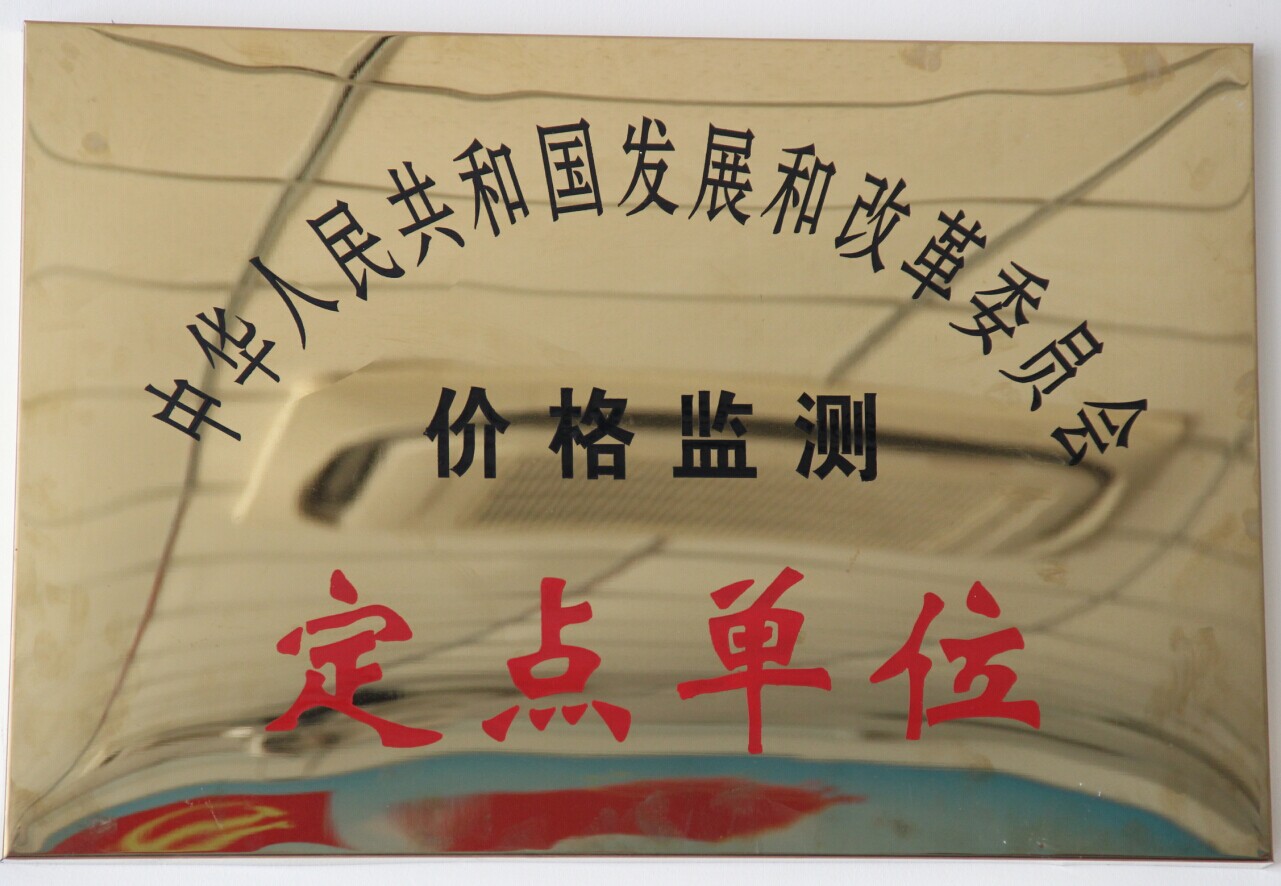 中华人民共和国发展和改革委员会
价格监测
定点单位